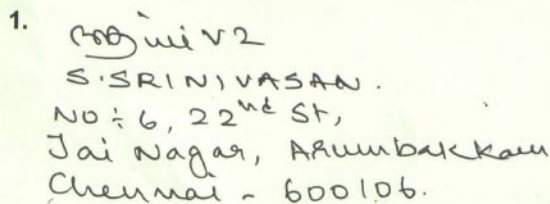 1.
S.SRINIVASAN.
NO: 6, 22nd St,
Jai Nagar, Arumbakkam
Chennai - 600106.